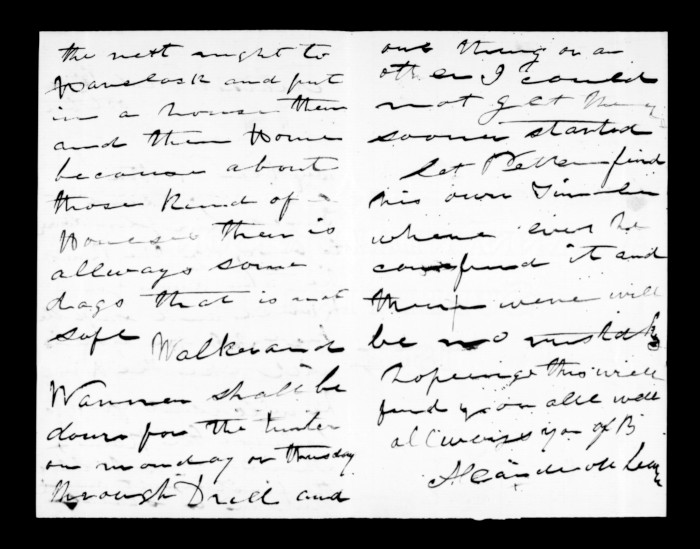 the next night to
and put
in a house then
and then Home
because about
those Kind of
Houses then is
allways some
dags that is not
safe Walker and
Warmen shall be
down for the timber
on monday or thursday
through Drill and
one thing or an
other I could
not get them
sooner started
let Peter find
his own Timber
where ever he
can find it and
then will
be no mistake
hopeing this will
find you all well
allways you